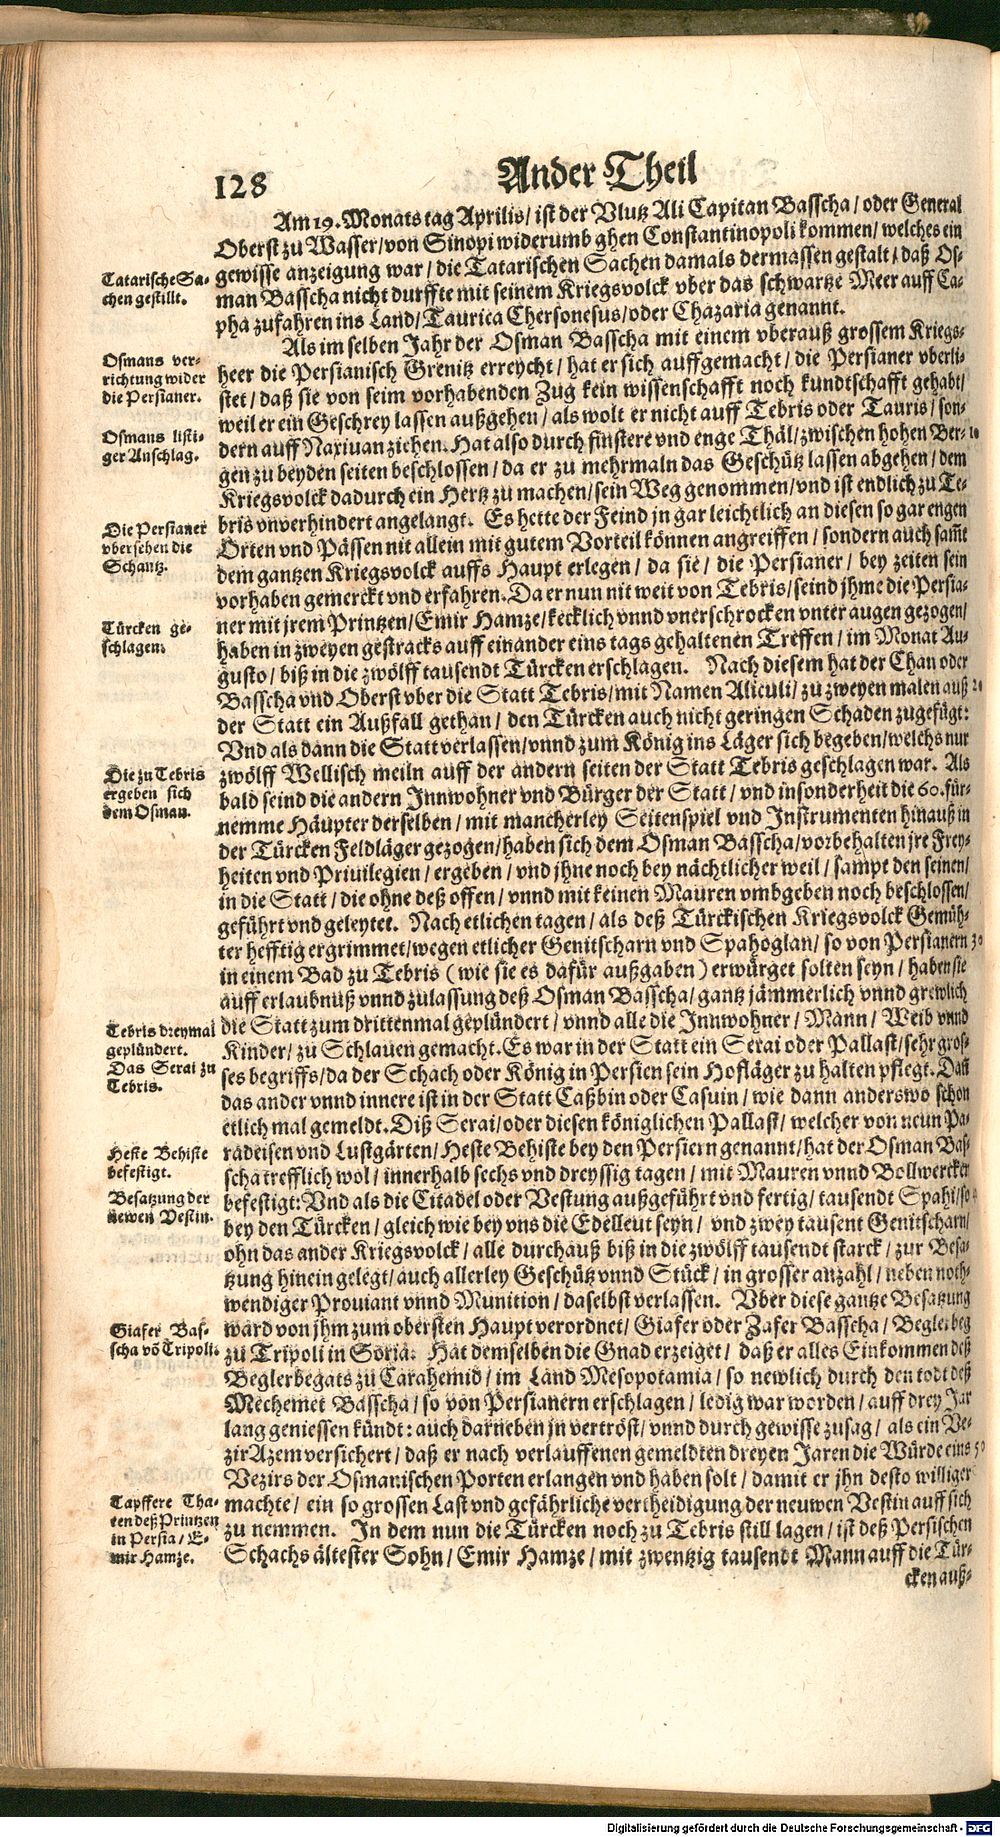 128
Ander Theil
Am 19. Monats tag Aprilis/ ist der Vlutz Ali Capitan Basscha/ oder General
Oberst zu Wasser/ von Sinopi widerumb ghen Constantinopoli kommen/ welches ein
gewisse anzeigung war/ die Tatarischen Sachen damals dermassen gestalt/ daß Os-
man Basscha nicht durffte mit seinem Kriegsvolck vber das schwartze Meer auff Ca-
pha zufahren ins Land/ Taurica Chersonesus/ oder Chazaria genannt.
Tatarische Sa-
chen gestillt.
Als im selben Jahr der Osman Basscha mit einem vberauß grossem Kriegs-
heer die Persianisch Grenitz erreycht/ hat er sich auffgemacht/ die Persianer vberli-
stet/ daß sie von seim vorhabenden Zug kein wissenschafft noch kundtschafft gehabt/
weil er ein Geschrey lassen außgehen/ als wolt er nicht auff Tebris oder Tauris/ son-
dern auff Narivan ziehen. Hat also durch finstere vnd enge Thäl/ zwischen hohen Ber- 10
gen zu beyden seiten beschlossen/ da er zu mehrmaln das Geschütz lassen abgehen/ dem
Kriegsvolck dadurch ein Hertz zu machen/ sein Weg genommen/ vnd ist endlich zu Te-
bris vnverhindert angelangt. Es hette der Feind jn gar leichtlich an diesen so gar engen
Orten vnd Pässen nit allein mit gutem Vorteil können angreiffen/ sondern auch sam̃t
dem gantzen Kriegsvolck auffs Haupt erlegen/ da sie/ die Persianer/ bey zeiten sein
vorhaben gemerckt vnd erfahren. Da er nun nit weit von Tebris/ seind jhme die Persia-
ner mit jrem Printzen/ Emir Hamze/ kecklich vnnd vnerschrocken vnter augen gezogen/
haben in zweyen gestracks auff einander eins tags gehaltenen Treffen/ im Monat Au-
gusto/ biß in die zwölff tausendt Türcken erschlagen. Nach diesem hat der Chan oder
Basscha vnd Oberst vber die Statt Tebris/ mit Namen Aliculi/ zu zweyen malen auß 20
der Statt ein Außfall gethan/ den Türcken auch nicht geringen Schaden zugefügt:
Vnd als dann die Statt verlassen/ vnnd zum König ins Läger sich begeben/ welchs nur
zwölff Wellisch meiln auff der andern seiten der Statt Tebris geschlagen war. Als
bald seind die andern Innwohner vnd Bürger der Statt/ vnd insonderheit die 60. für-
nemme Häupter derselben/ mit mancherley Seitenspiel vnd Instrumenten hinauß in
der Türcken Feldläger gezogen/ haben sich dem Osman Basscha/ vorbehalten jre Frey-
heiten vnd Priuilegien/ ergeben/ vnd jhne noch bey nächtlicher weil/ sampt den seinen/
in die Statt/ die ohne deß offen/ vnnd mit keinen Mauren vmbgeben noch beschlossen/
geführt vnd geleytet. Nach etlichen tagen/ als deß Türckischen Kriegsvolck Gemüh-
ter hefftig ergrimmet/ wegen etlicher Genitscharn vnd Spahoglan/ so von Persianern 30
in einem Bad zu Tebris (wie sie es dafür außgaben) erwürget solten seyn/ haben sie
auff erlaubnuß vnnd zulassung deß Osman Basscha/ gantz jämmerlich vnnd grewlich
die Statt zum drittenmal geplündert/ vnnd alle die Innwohner/ Mann/ Weib vnnd
Kinder/ zu Schlauen gemacht. Es war in der Statt ein Serai oder Pallast/ sehr gros-
ses begriffs/ da der Schach oder König in Persien sein Hofläger zu halten pflegt. Dañ
das ander vnnd innere ist in der Statt Caßbin oder Casuin/ wie dann anderswo schon
etlich mal gemeldt. Diß Serai/ oder diesen königlichen Pallast/ welcher von neun Pa-
radeisen vnd Lustgärten/ Heste Behiste bey den Persiern genannt/ hat der Osman Bas-
scha trefflich wol/ innerhalb sechs vnd dreyssig tagen/ mit Mauren vnnd Bollwercken
befestigt: Vnd als die Citadel oder Vestung außgeführt vnd fertig/ tausendt Spahi/ so
bey den Türcken/ gleich wie bey vns die Edelleut seyn/ vnd zwey tausent Genitscharn/
ohn das ander Kriegsvolck/ alle durchauß biß in die zwölff tausendt starck/ zur Besa-
tzung hinein gelegt/ auch allerley Geschütz vnnd Stück/ in grosser anzahl/ neben noth-
wendiger Prouiant vnnd Munition/ daselbst verlassen. Vber diese gantze Besatzung
ward von jhm zum obersten Haupt verordnet/ Giafer oder Zafer Basscha/ Beglerbeg
zu Tripoli in Soria. Hat demselben die Gnad erzeiget/ daß er alles Einkommen deß
Beglerbegats zu Carahemid/ im Land Mesopotamia/ so newlich durch den todt deß
Mechemet Basscha/ so von Persianern erschlagen/ ledig war worden/ auff drey Jar
lang geniessen kündt: auch darneben jn vertröst/ vnnd durch gewisse zusag/ als ein Ve-
zir Azem versichert/ daß er nach verlauffenen gemeldten dreyen Jaren die Würde eins 50
Vezirs der Osmanischen Porten erlangen vnd haben solt/ damit er jhn desto williger
machte/ ein so grossen Last vnd gefährliche vertheidigung der neuwen Vestin auff sich
zu nemmen. In dem nun die Türcken noch zu Tebris still lagen/ ist deß Persischen
Schachs ältester Sohn/ Emir Hamze/ mit zwentzig tausendt Mann auff die Tür-
cken auß-
Osmans ver-
richtung wider
die Persianer.
Osmans listi-
ger Anschlag.
Die Persianer
vbersehen die
Schantz.
Türcken ge-
schlagen.
Die zu Tebris
ergeben sich
dem Osman.
Tebris dreymal
geplündert.
Das Serai zu
Tebris.
Heste Behiste
befestigt.
Besatzung der
newen Vestin.
Giafer Bas-
scha võ Tripoli.
Tapffere Tha-
ten deß Printzen
in Persia/ E-
mir Hamze.
Digitalisierung gefördert durch die Deutsche Forschungsgemeinschaft - DFG